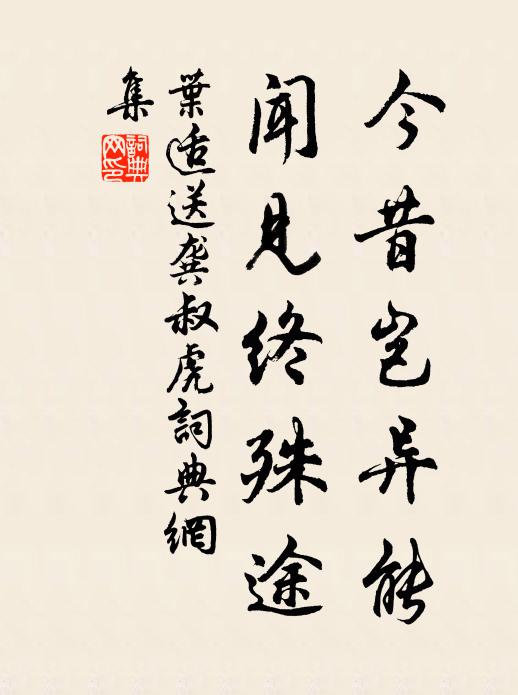 今昔岂异能
闻见终殊途
葉适送龚叔虎詞典網
集
詞典
网印